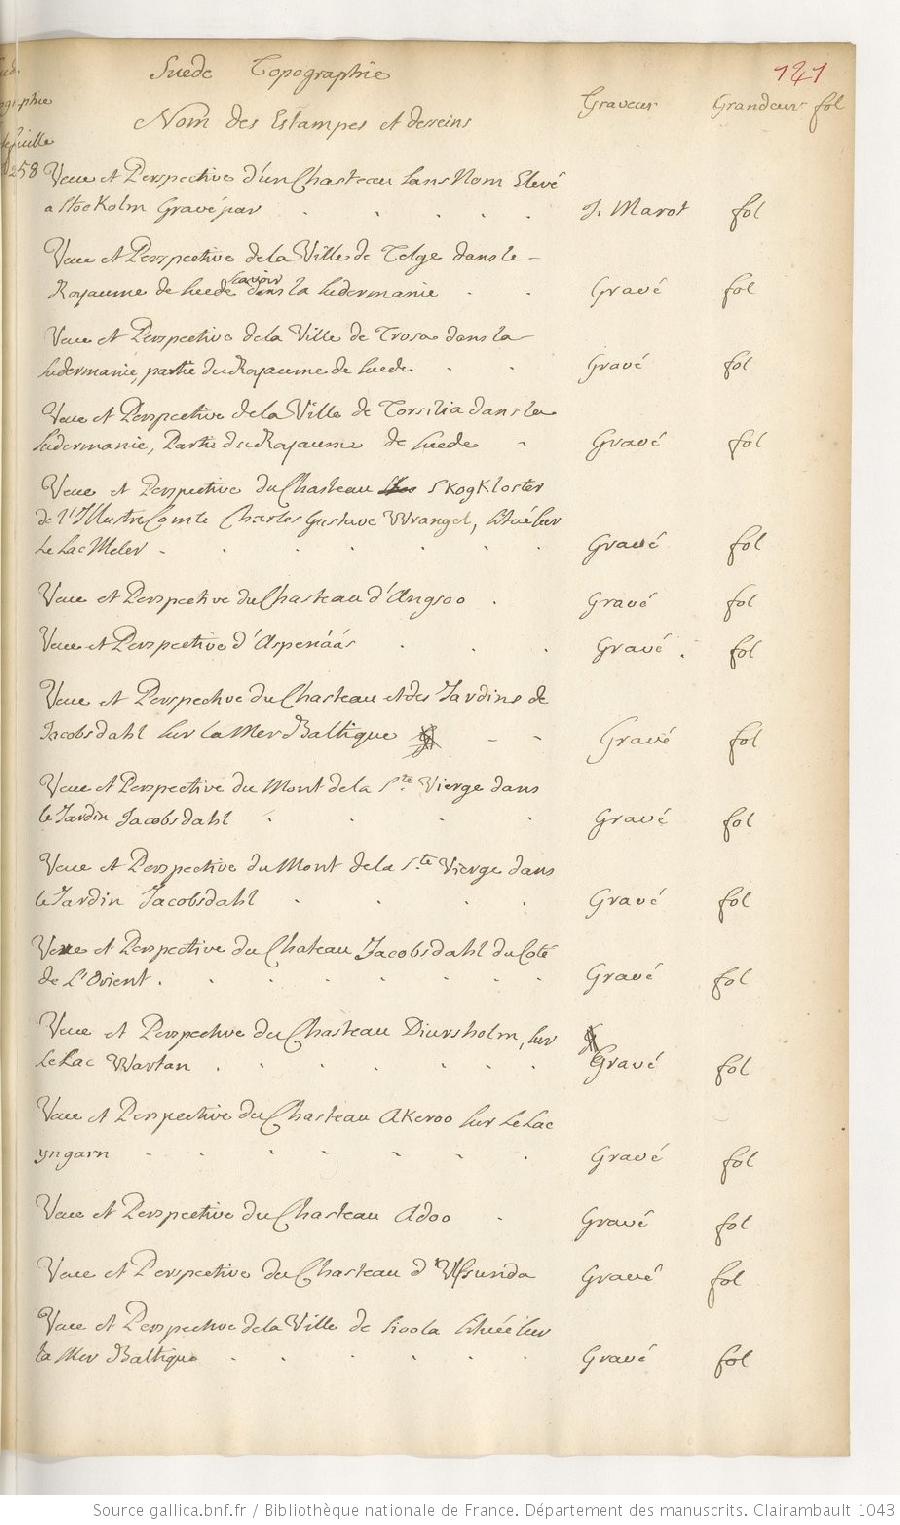 Suede Topographie 121
Nom des Estampes et desseins Graveur Grandeur fol
258 Veue et Perspective d'un Chasteau sans Nom Elevé
a Stockolm Gravé par . . . . . J. Marot fol
Veue et Perspective de la Ville de Telge dans le
Royaume de Suede dans la Sudermanie . . Gravé fol
Veue et Perspective de la Ville de Trosa dans la
Sudermanie, partie du Royaume de Suede . . . Gravé fol
Veue et Perspective de la Ville de Torsilia dans la
Sudermanie, Partie du Royaume de Suede . Gravé fol
Veue et Perspective du Chasteau Skogkloster
de l'Illustre Comte Charles Gustave Wrangel, située sur
Le Lac Meler . . . . . . . Gravé fol
Veue et Perspective du Chasteau d'Angsoo . Gravé fol
Veue et Perspective d'Aspenáás . . . Gravé . fol
Veue et Perspective du Chasteau et des Jardins de
Jacobsdahl sur la Mer Baltique - - Gravé fol
Veue et Perspective du Mont de la Ste. Vierge dans
le Jardin Jacobsdahl . . . . Gravé fol
Veue et Perspective du Mont de la Ste. Vierge dans
le Jardin Jacobsdahl . . . . Gravé fol
Veue et Perspective du Chateau Jacobsdahl du Coté
de L'Orient . . . . . . . . Gravé fol
Veue et Perspective du Chasteau Diursholm, sur
Le Lac Wartan . . . . . . . Gravé fol
Veue et Perspective du Chasteau Akeroo sur Le Lac
yngarn . . . . . . . Gravé fol
Veue et Perspective du Chasteau Adoo . Gravé fol
Veue et Perspective du Chasteau d'Ulfsunda Gravé fol
Veue et Perspective de la Ville de située sur
la Mer Baltique . . . . . . Gravé fol
Source gallica.bnf.fr / Bibliothèque nationale de France. Département des manuscrits. Clairambault 1043